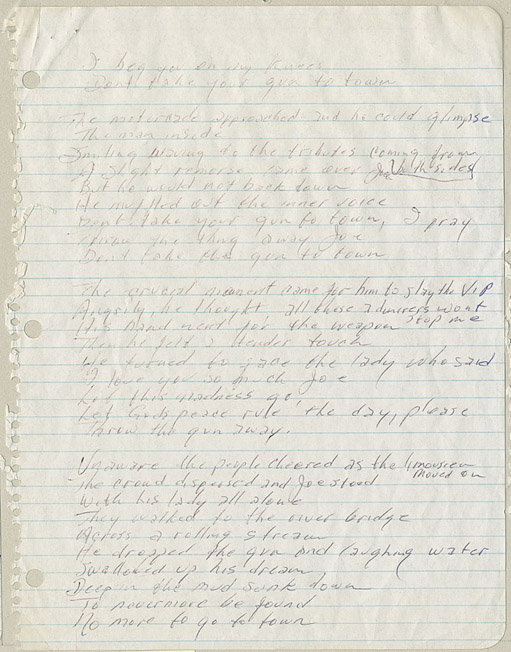 I beg you on my knees
Dont take your gun to town
The motorcade approached and he could glimpse
The man inside
Smiling waving to the tributes coming from
both sides
A slight remorse came over Joe
But he would not back down
He muffled out the inner voice
Dont take your gun to town, I pray
Throw the thing away Joe
Don't take the gun to town
The crucial moment came for him to slay the VIP
Angrily he thought, all those admirers wont
stop me
His hand went for the weapon
Then he felt a tender touch
He turned to face the lady who said
"I love you so much Joe
Let this madness go
Let God's peace rule the day, please
Throw the gun away.
Unaware the people cheered as the limousien
moved on
The crowd dispersed and Joe stood
With his lady all alone
They walked to the river bridge
Across a rolling stream
He dropped the gun and laughing water
Swallowed up his dream
Deep in the mud sunk down
To nevermore be found
No more to go to town